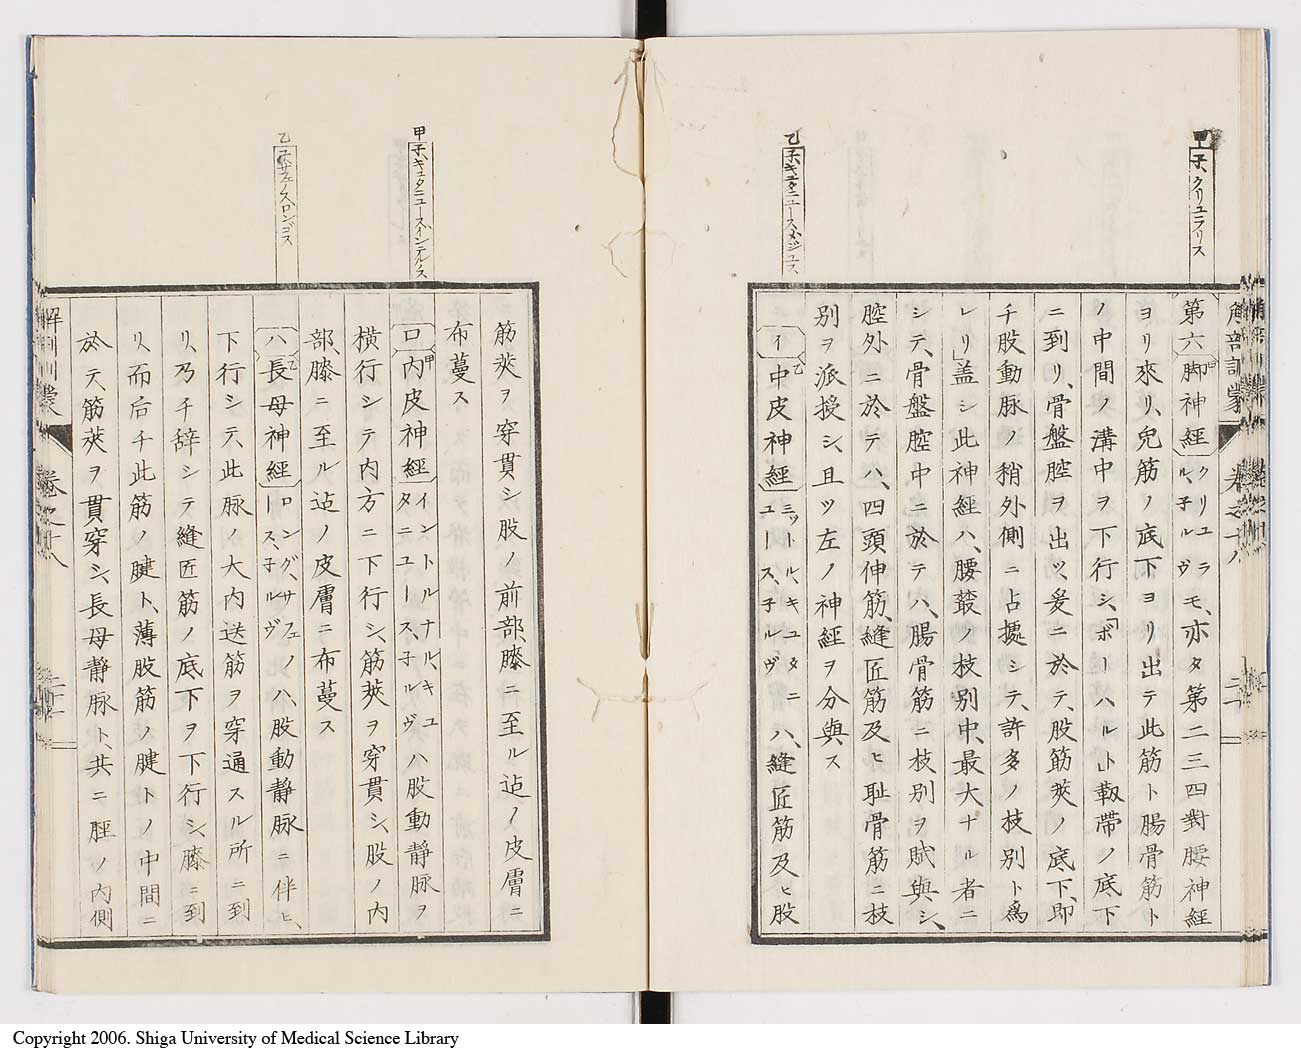 甲 子、クリュラリス
乙 子、キュタニュースメジユス
解剖訓蒙
卷之十八
第六脚神經クリユラル、子ルヴモ、亦タ第二三四對腰神經
ヨリ來リ、皃筋ノ底下ヨリ出テ此筋ト腸骨筋ト
ノ中間ノ溝中ヲ下行シ、「ポーパルト」靱帶ノ底下
ニ到リ、骨盤腔ヲ出ツ、爰ニ於テ、股筋莢ノ底下、即
チ股動脉ノ稍外側ニ占據シテ、許多ノ枝別ト爲
レリ」盖シ此神經ハ、腰叢ノ枝別中、最大ナル者ニ
シテ、骨盤腔中ニ於テハ、腸骨筋ニ枝別ヲ賦與シ、
腔外ニ於テハ、四頭伸筋、縫匠筋及ヒ恥骨筋ニ枝
別ヲ派授シ、且ツ左ノ神經ヲ分與ス
イ 中皮神經ミットル、キユタニユース、子ルヴハ、縫匠筋及ヒ股
甲 子、キュタニュースインテルノス
乙 子、サフェノスロンゴス
筋莢ヲ穿貫シ、股ノ前部、膝ニ至ル迠ノ皮膚ニ
布蔓ス
ロ 内皮神經イントルナル、キユタニユース、子ルヴハ股動靜脉ヲ
横行シテ内方ニ下行シ、筋莢ヲ穿貫シ、股ノ内
部、膝ニ至ル迠ノ皮膚ニ布蔓ス
ハ 長母神經ロング、サフェノース、子ルヴハ股動靜脉ニ伴ヒ、
下行シテ、此脉ノ大内送筋ヲ穿通スル所ニ到
リ、乃チ辞シテ縫匠筋ノ底下ヲ下行シ、膝ニ到
リ、而后チ此筋ノ腱ト、薄股筋ノ腱トノ中間ニ
於テ、筋莢ヲ貫穿シ、長母靜脉ト、共ニ脛ノ内側
解剖訓蒙
卷之十八
Copyright 2006. Shiga University of Medical Science Library